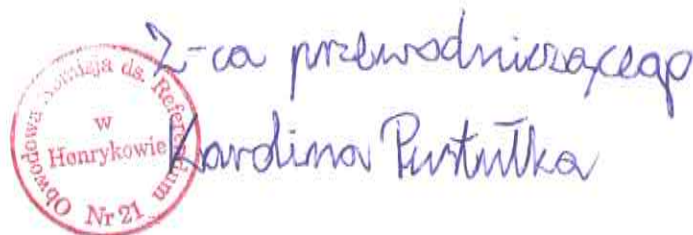 Z-ca przewodniczącego
Karolina Pustułka
Obwodowa Komisja ds. Referendum
w
Henrykowie
Nr 21